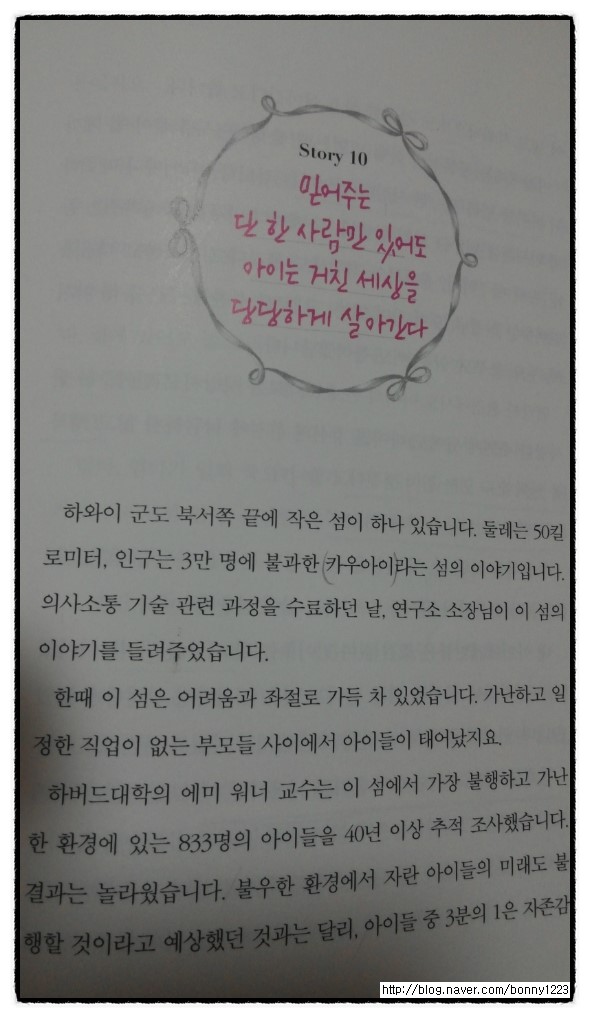 Story 10
믿어주는
단 한 사람만 있어도
아이는 거친 세상을
당당하게 살아간다
하와이 군도 북서쪽 끝에 작은 섬이 하나 있습니다. 둘레는 50킬
로미터, 인구는 3만 명에 불과한 (카우아이)라는 섬의 이야기입니다.
의사소통 기술 관련 과정을 수료하던 날, 연구소 소장님이 이 섬의
이야기를 들려주었습니다.
한때 이 섬은 어려움과 좌절로 가득 차 있었습니다. 가난하고 일
정한 직업이 없는 부모들 사이에서 아이들이 태어났지요.
하버드대학의 에미 워너 교수는 이 섬에서 가장 불행하고 가난
한 환경에 있는 833명의 아이들을 40년 이상 추적 조사했습니다.
결과는 놀라웠습니다. 불우한 환경에서 자란 아이들의 미래도 불
행할 것이라고 예상했던 것과는 달리, 아이들 중 3분의 1은 자존감
http://blog.naver.com/bonny1223